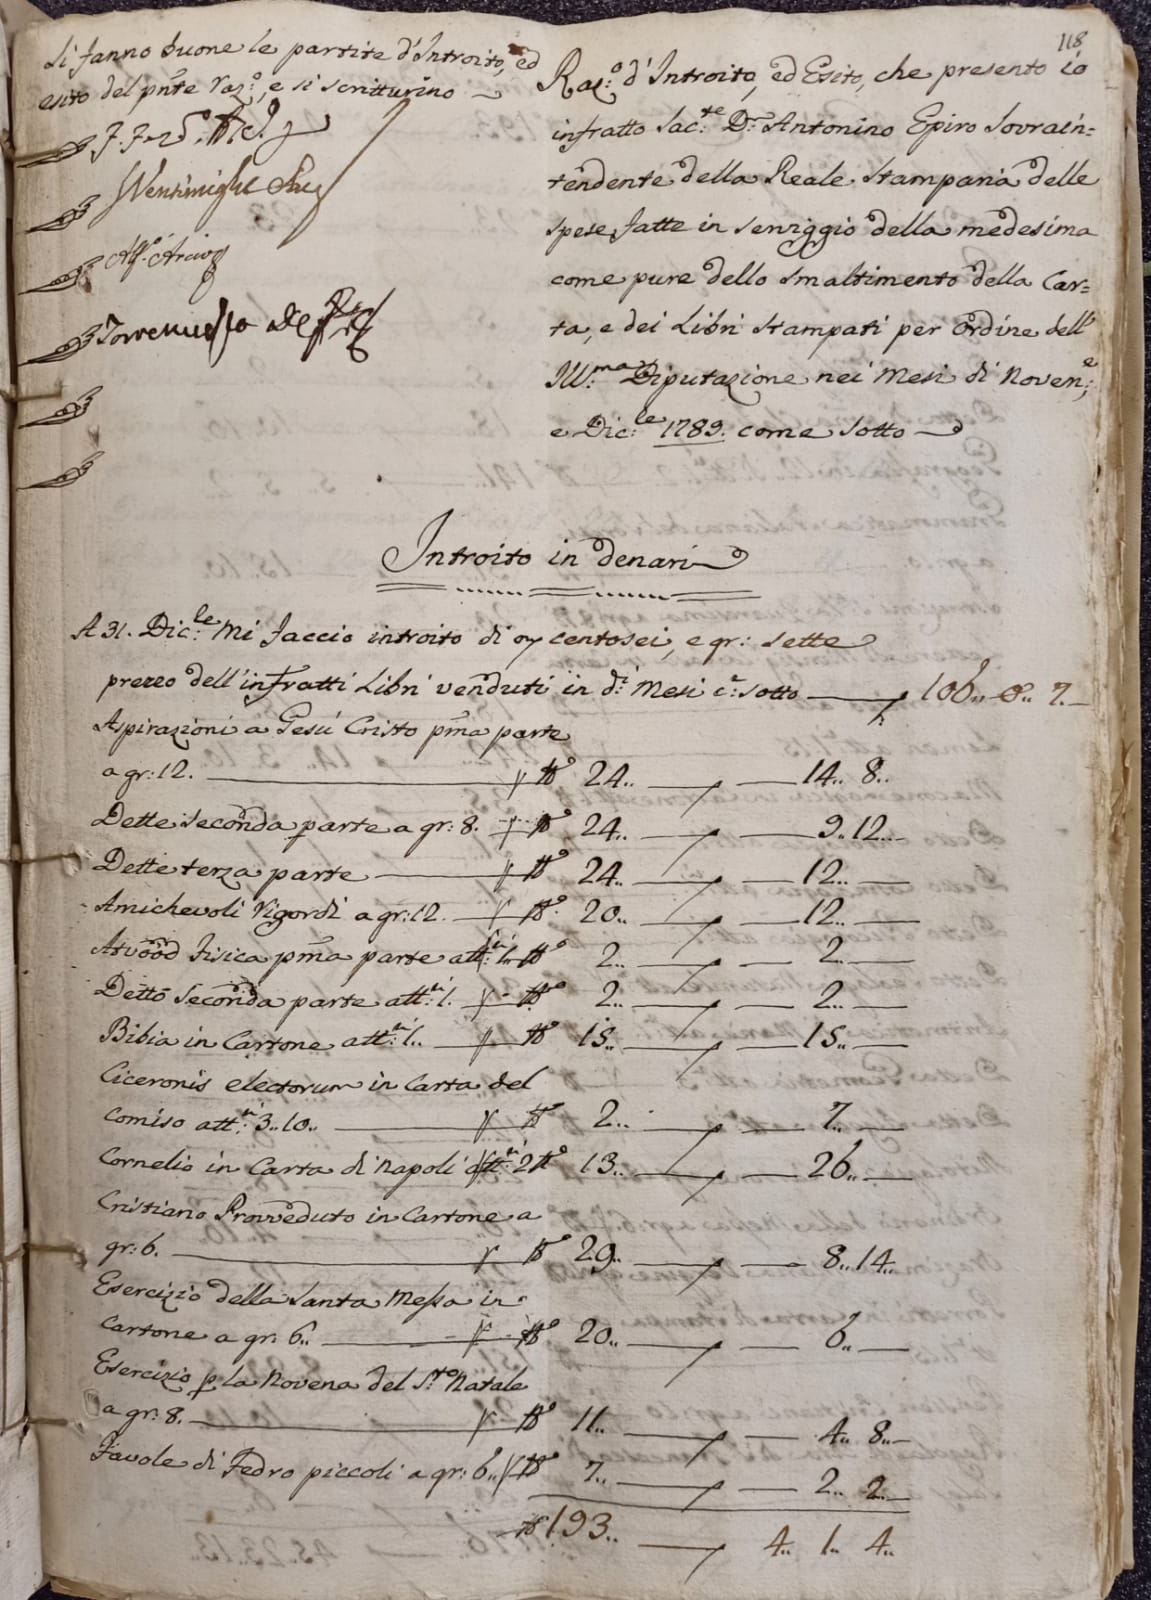 118
Si fanno buone le partite d'Introito, ed
esito del pnte raz:o, e si scritturino
Raz:o d'Introito, ed Esito, che presento io
infratto Sac:te Dr Antonino Epiro Sovrain=
tendente della Reale Stamparia delle
spese fatte in serviggio della medesima
come pure dello smaltimento della Car=
ta, e dei Libri stampati per ordine dell'
Ill:ma Diputazione nei Mesi di Noven:e,
e Dic:le 1789. come sotto
Introito in denari
A 31. Dic:le Mi faccio introito di oz centosei, e gr: sette
prezzo dell'infratti Libri venduti in d:i Mesi c:e sotto 106.. 0.. 7.
Aspirazioni a Gesú Cristo pma parte
a gr: 12. No 24.. 14.. 8..
Dette seconda parte a gr: 8. No 24.. 9.. 12..
Dette terza parte No 24.. 12..
Amichevoli Rigordi a gr: 12. No 20.. 12..
Atvood Fisica pma parte att:ni 1.. No 2.. 2..
Detto seconda parte att:ni 1. No 2.. 2..
Bibia in Cartone att:ni 1.. No 15.. 15..
Ciceronis electorum in Carta del
Comiso att:ni 3.. 10.. No 2.. 7..
Cornelio in Carta di Napoli att:ni 2 No 13.. 26..
Cristiano Provveduto in Cartone a
gr: 6. No 29.. 8.. 14..
Esercizio della Santa Messa in
Cartone a gr: 6.. No 20.. 6..
Esercizio p la Novena del S:to Natale
a gr: 8. No 11.. 4.. 8..
Favole di Fedro piccoli a gr: 6.. No 7.. 2.. 2..
No 193.. 4.. 1.. 4..